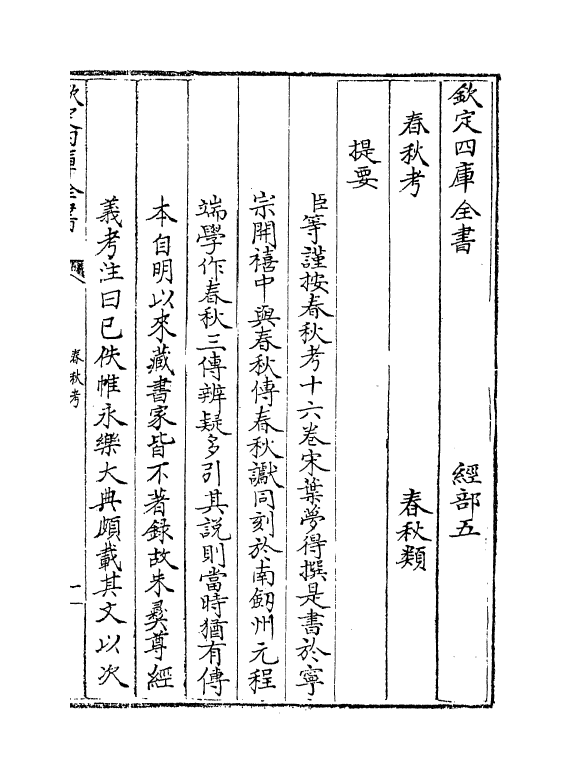 欽定四庫全書　經部五
春秋考　春秋類
提要
臣等謹按春秋考十六卷宋葉夢得撰是書於寧
宗開禧中與春秋傳春秋讞同刻於南劔州元程
端學作春秋三傳辨疑多引其說則當時猶有傳
本自明以來藏書家皆不著録故朱彛尊經
義考注曰已佚惟永樂大典頗載其文以次
欽定四庫全書
春秋考
一